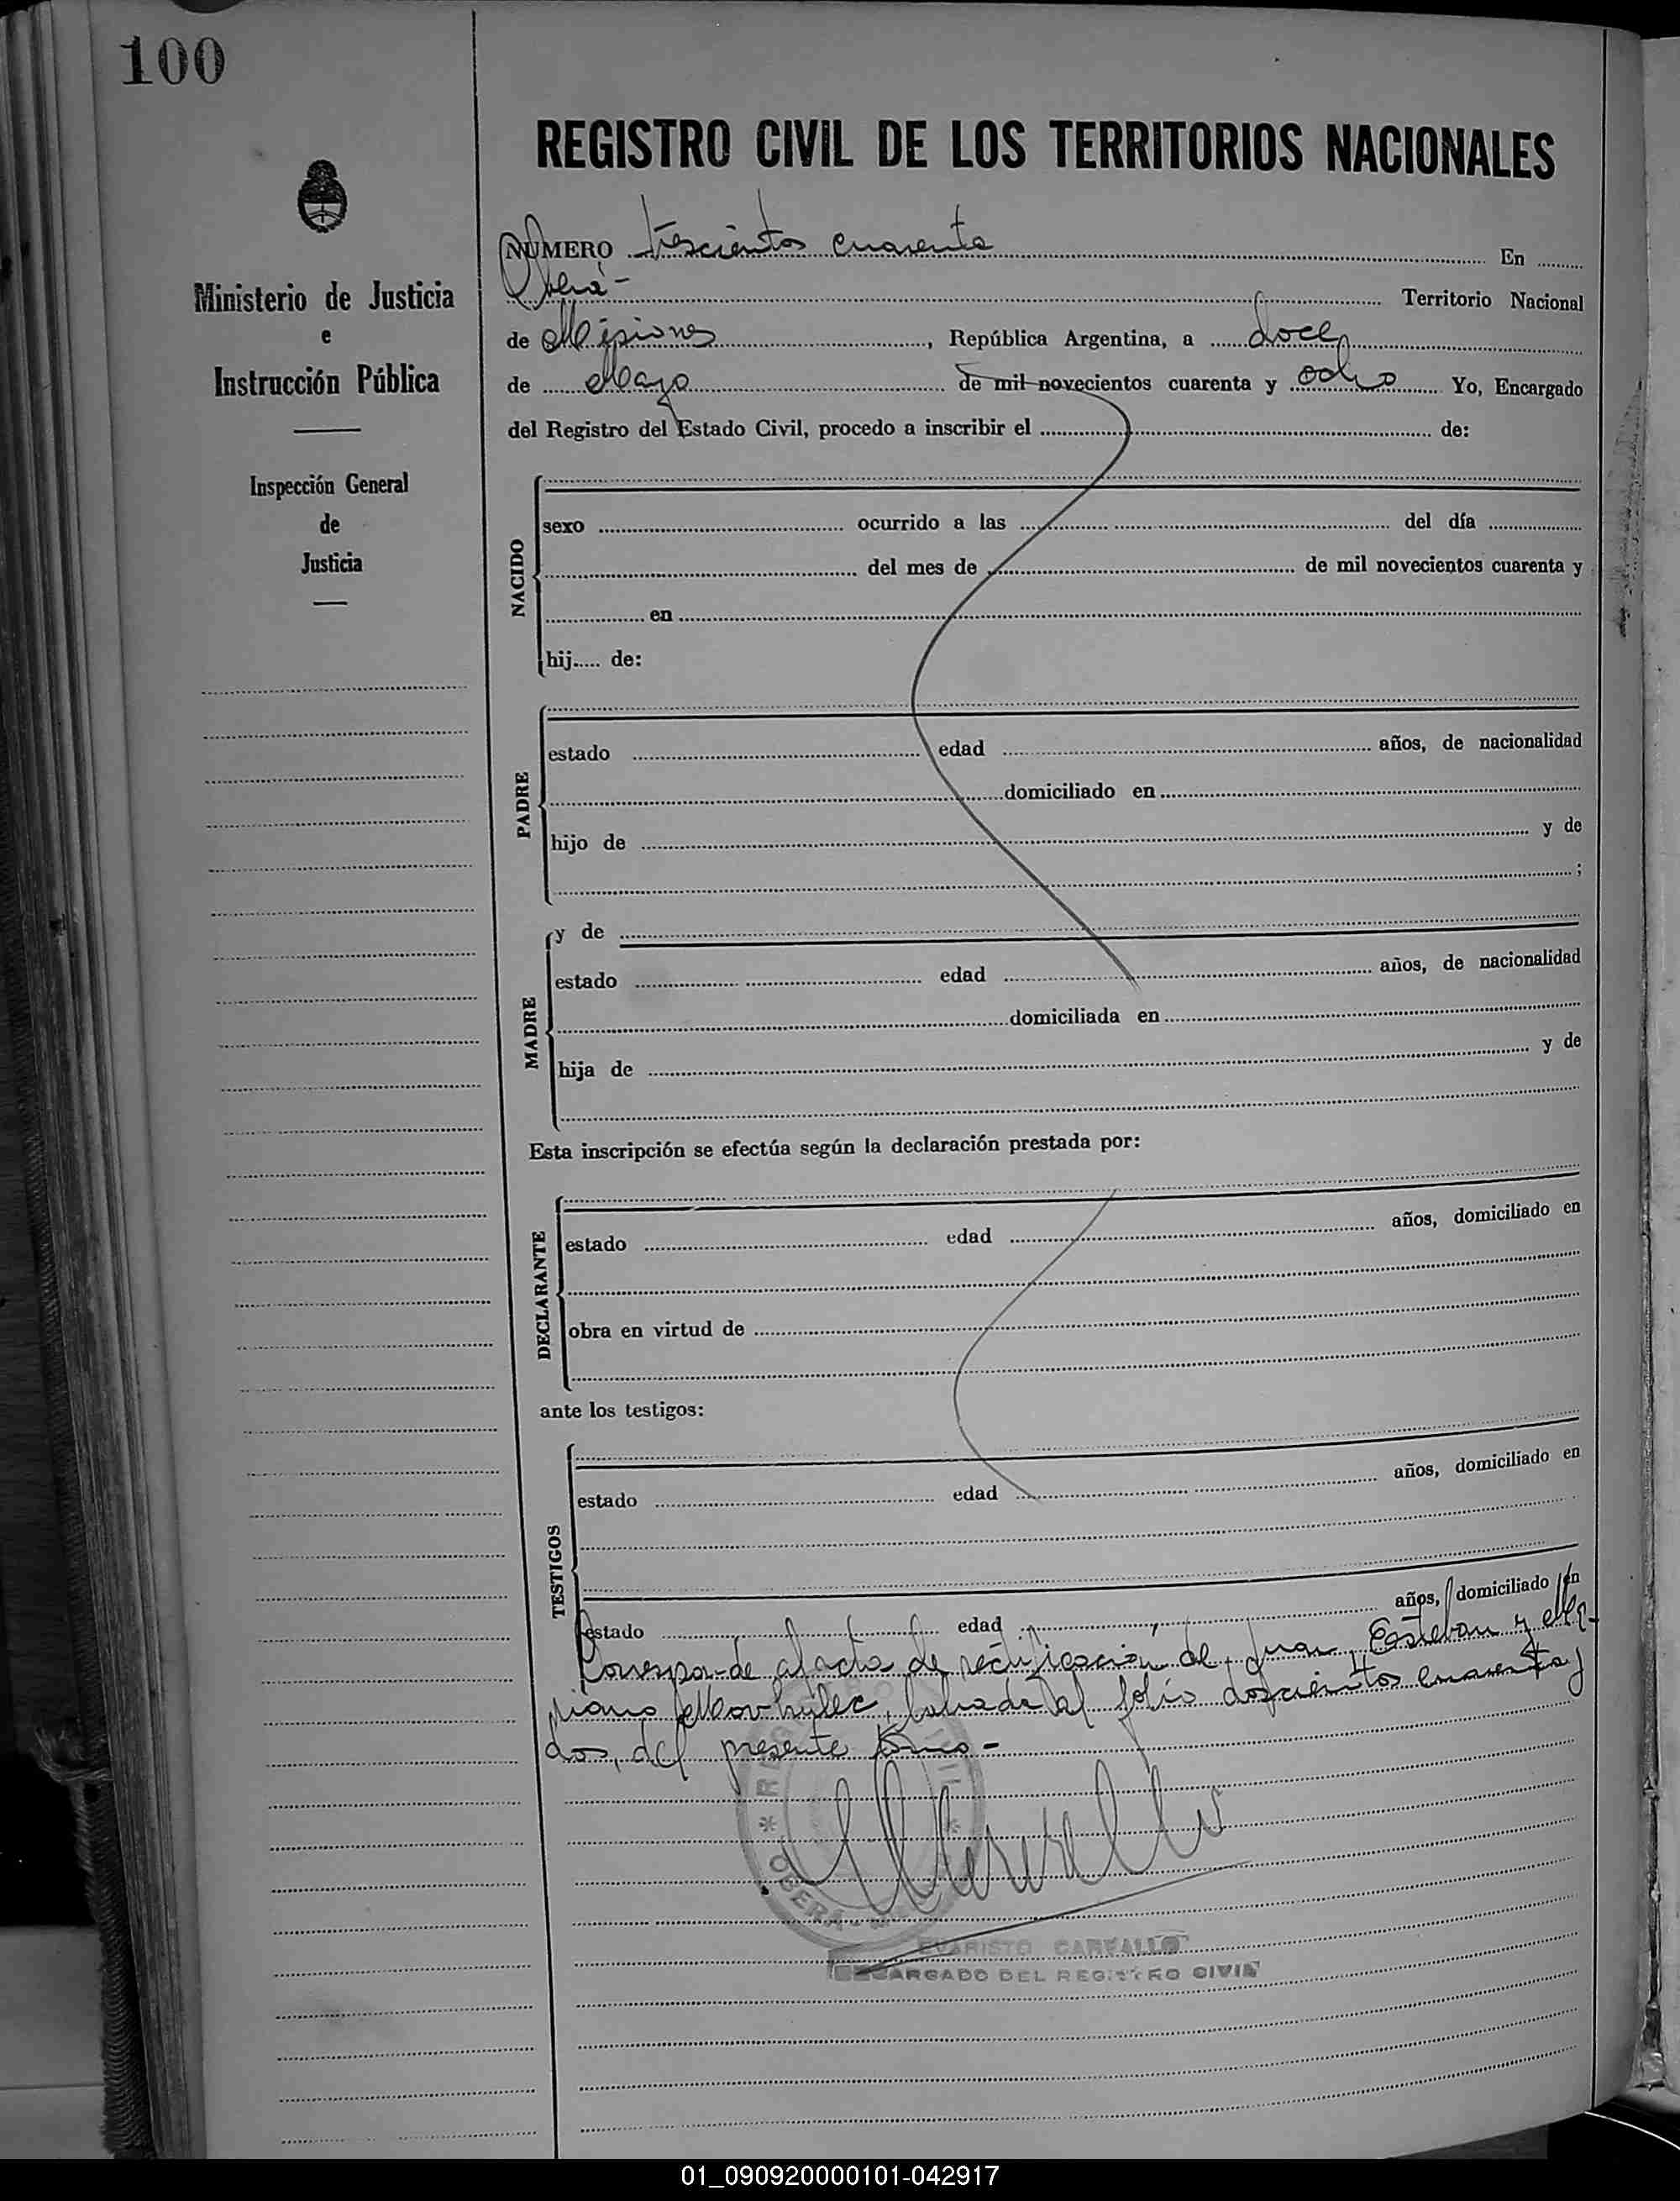 100
REGISTRO CIVIL DE LOS TERRITORIOS NACIONALES
Ministerio de Justicia
e
Instrucción Pública
Inspección General
de
Justicia
NUMERO trescientos cuarenta En
Oberá - Territorio Nacional
de Misiones, República Argentina, a doce
de Mayo de mil novecientos cuarenta y ocho Yo, Encargado
del Registro del Estado Civil, procedo a inscribir el de:
NACIDO
sexo ocurrido a las del día
del mes de de mil novecientos cuarenta y
en
hij..... de:
PADRE
estado edad años, de nacionalidad
domiciliado en
hijo de y de
;
MADRE
y de
estado edad años, de nacionalidad
domiciliada en
hija de y de
Esta inscripción se efectúa según la declaración prestada por:
DECLARANTE
estado edad años, domiciliado en
obra en virtud de
ante los testigos:
TESTIGOS
estado edad años, domiciliado en
estado edad años, domiciliado en
al acta de rectificación de Juan, Esteban y
labrada al folio doscientos cuarenta y
dos, del presente tomo -
REGISTRO CIVIL
* OBERA - *
EVARISTO CARVALLO
ENCARGADO DEL REGISTRO CIVIL
01_090920000101-042917